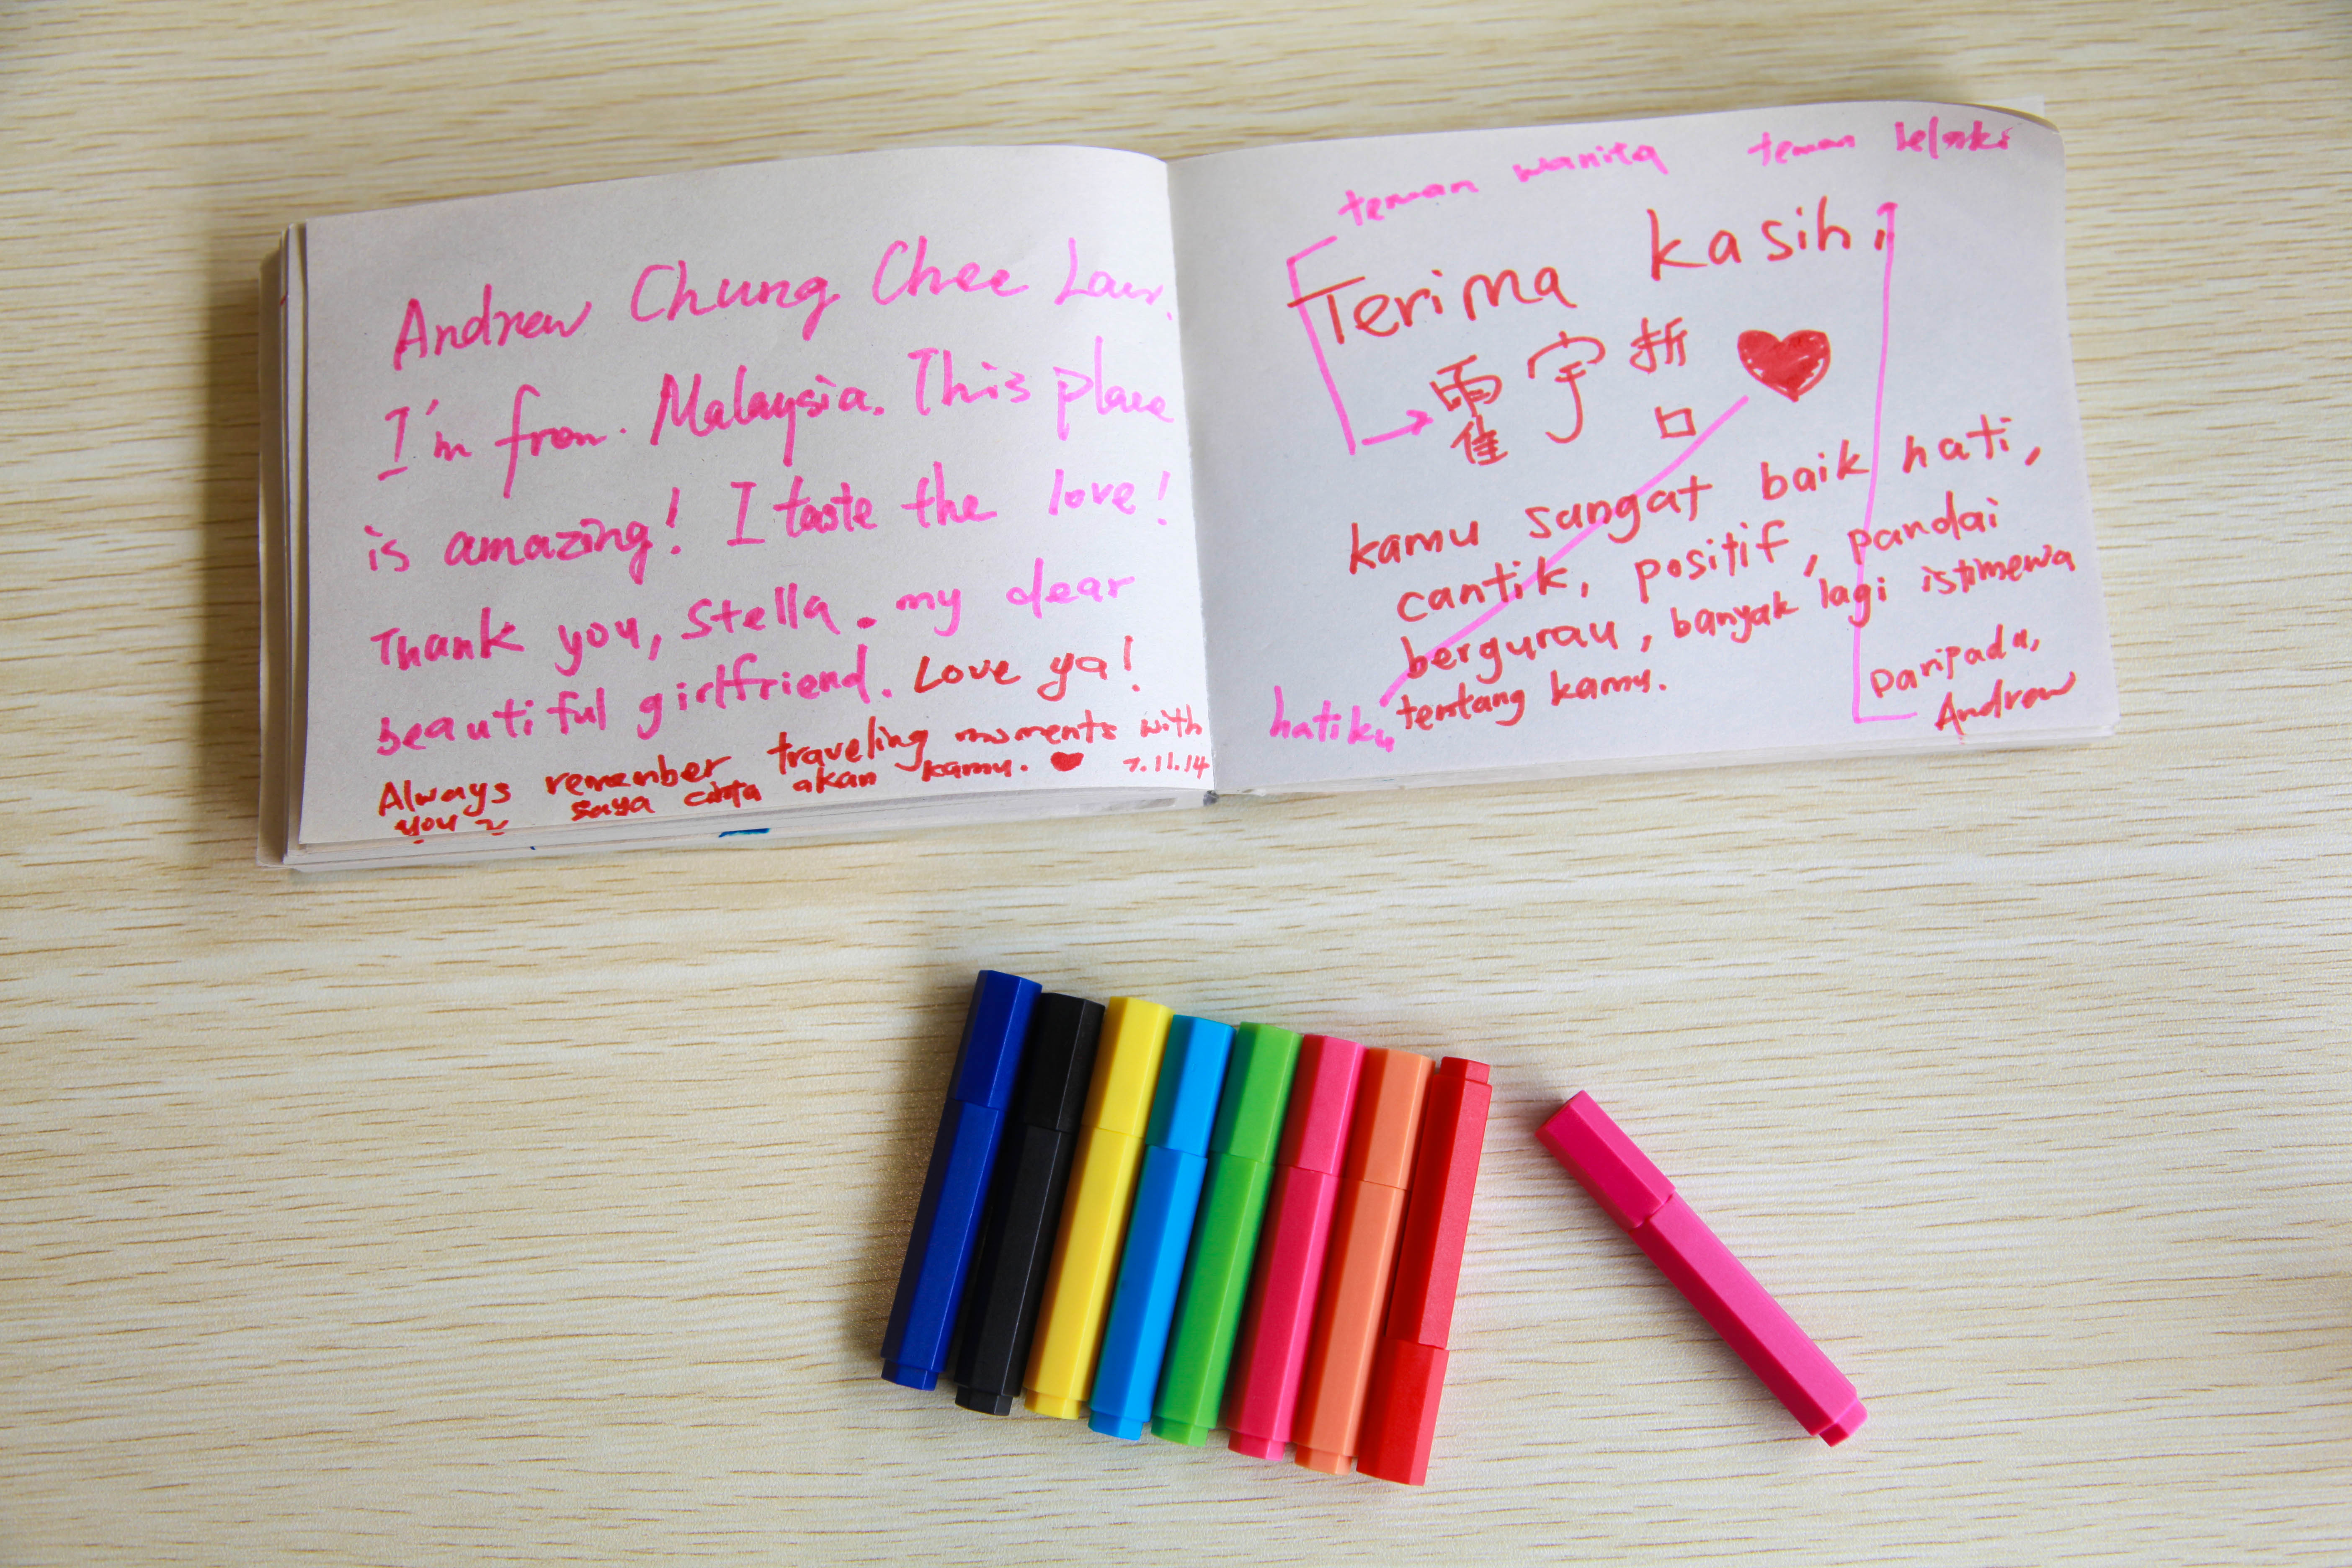 Andrew Chung Chee Law.
I'm from. Malaysia. This place
is amazing! I taste the love!
Thank you, Stella. my dear
beautiful girlfriend. Love ya!
Always remember traveling moments with
you ~ saya cinta akan kamu. ♥ 7.11.14
teman wanita teman lelaki
Terima kasih,
霍宇哲 ♥
kamu sangat baik hati,
cantik, positif, pandai
bergurau, banyak lagi istimewa
tentang kamu.
hatiku
Daripada,
Andrew